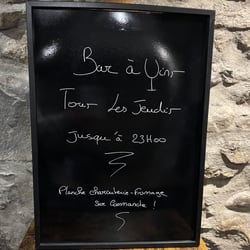 Bar à Vins
Tous Les Jeudis
Jusqu'à 23H00
Planche charcuterie-Fromage
Sur Commande !